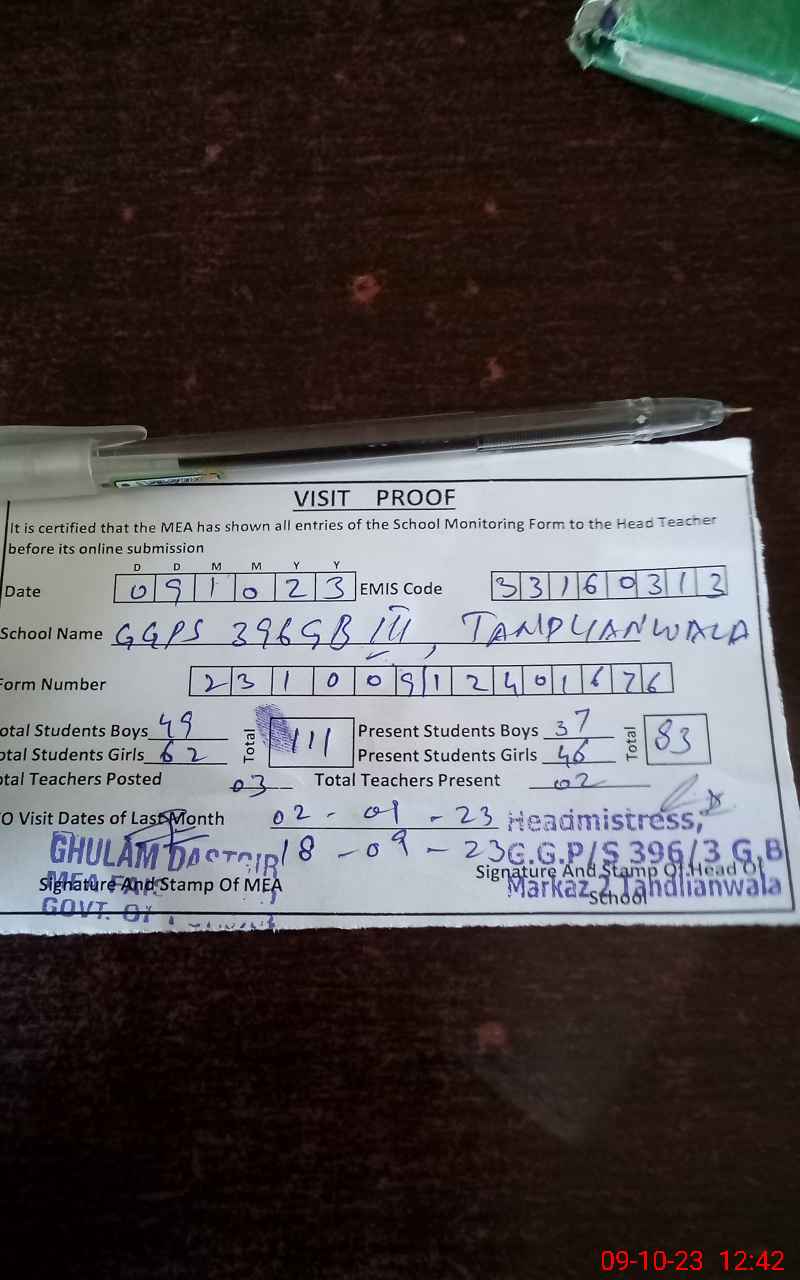 VISIT PROOF
It is certified that the MEA has shown all entries of the School Monitoring Form to the Head Teacher
before its online submission
D D M M Y Y
Date 0 9 1 0 2 3 EMIS Code 3 3 1 6 0 3 1 3
School Name GGPS 396GB III, TANDLIANWALA
Form Number 2 3 1 0 0 9 1 2 4 0 1 6 7 6
otal Students Boys 49 Total 111 Present Students Boys 37 Total 83
otal Students Girls 62 Present Students Girls 46
otal Teachers Posted 03 Total Teachers Present 02
O Visit Dates of Last Month 02 - 09 - 23
18 - 09 - 23
Headmistress,
G.G.P/S 396/3 G.B
Markaz 2 Tandlianwala
Signature And Stamp Of Head Of
School
GHULAM DASTGIR
MEA
GOVT. OF
Signature And Stamp Of MEA
09-10-23 12:42